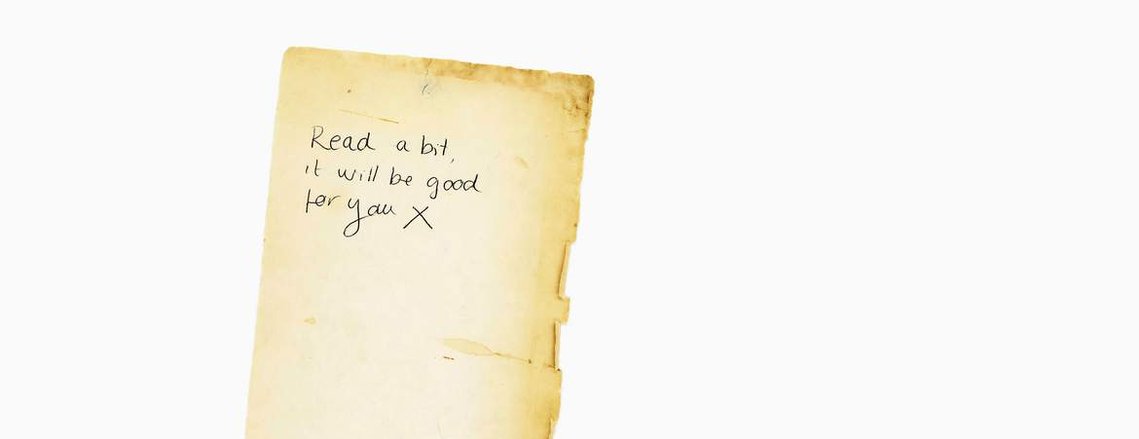 Read a bit,
it will be good
for you X